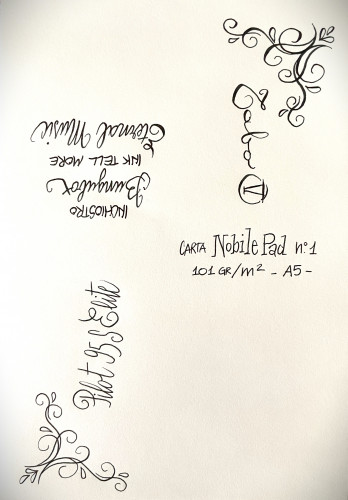 CARTA Nobile Pad n°1
101 GR/m² - A5 -
INCHIOSTRO
Bungubox
INK TELL MORE
Eternal Music
Pilot 95S Elite